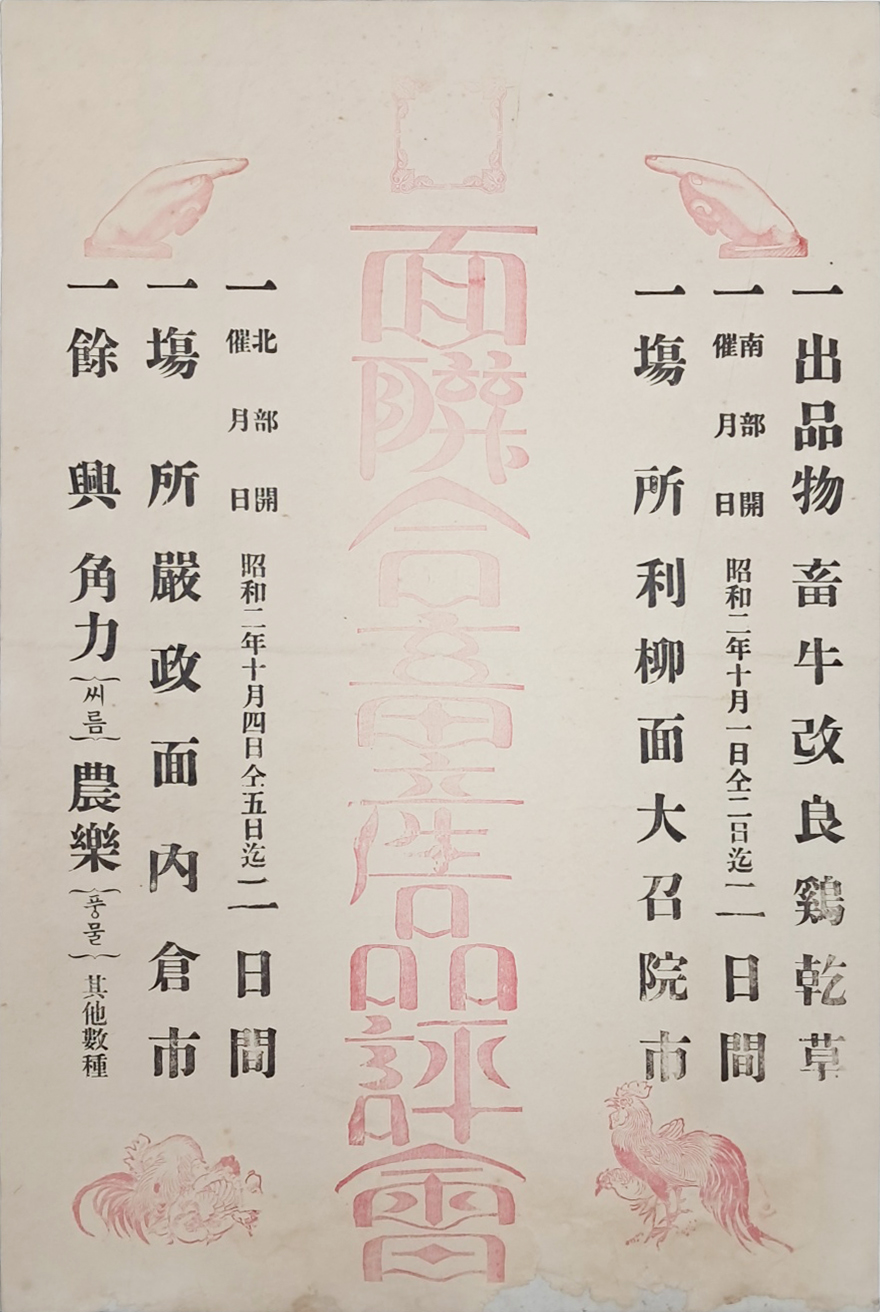 一 出品物 畜牛改良鷄乾草
一 南部開催月日 昭和二年十月一日仝二日迄二日間
一 塲所 利柳面大召院市
面聯合畜産品評會
一 北部開催月日 昭和二年十月四日仝五日迄二日間
一 塲所 嚴政面內倉市
一 餘興 角力(씨름) 農樂(풍물) 其他數種